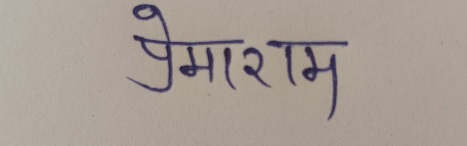 प्रेमाराम